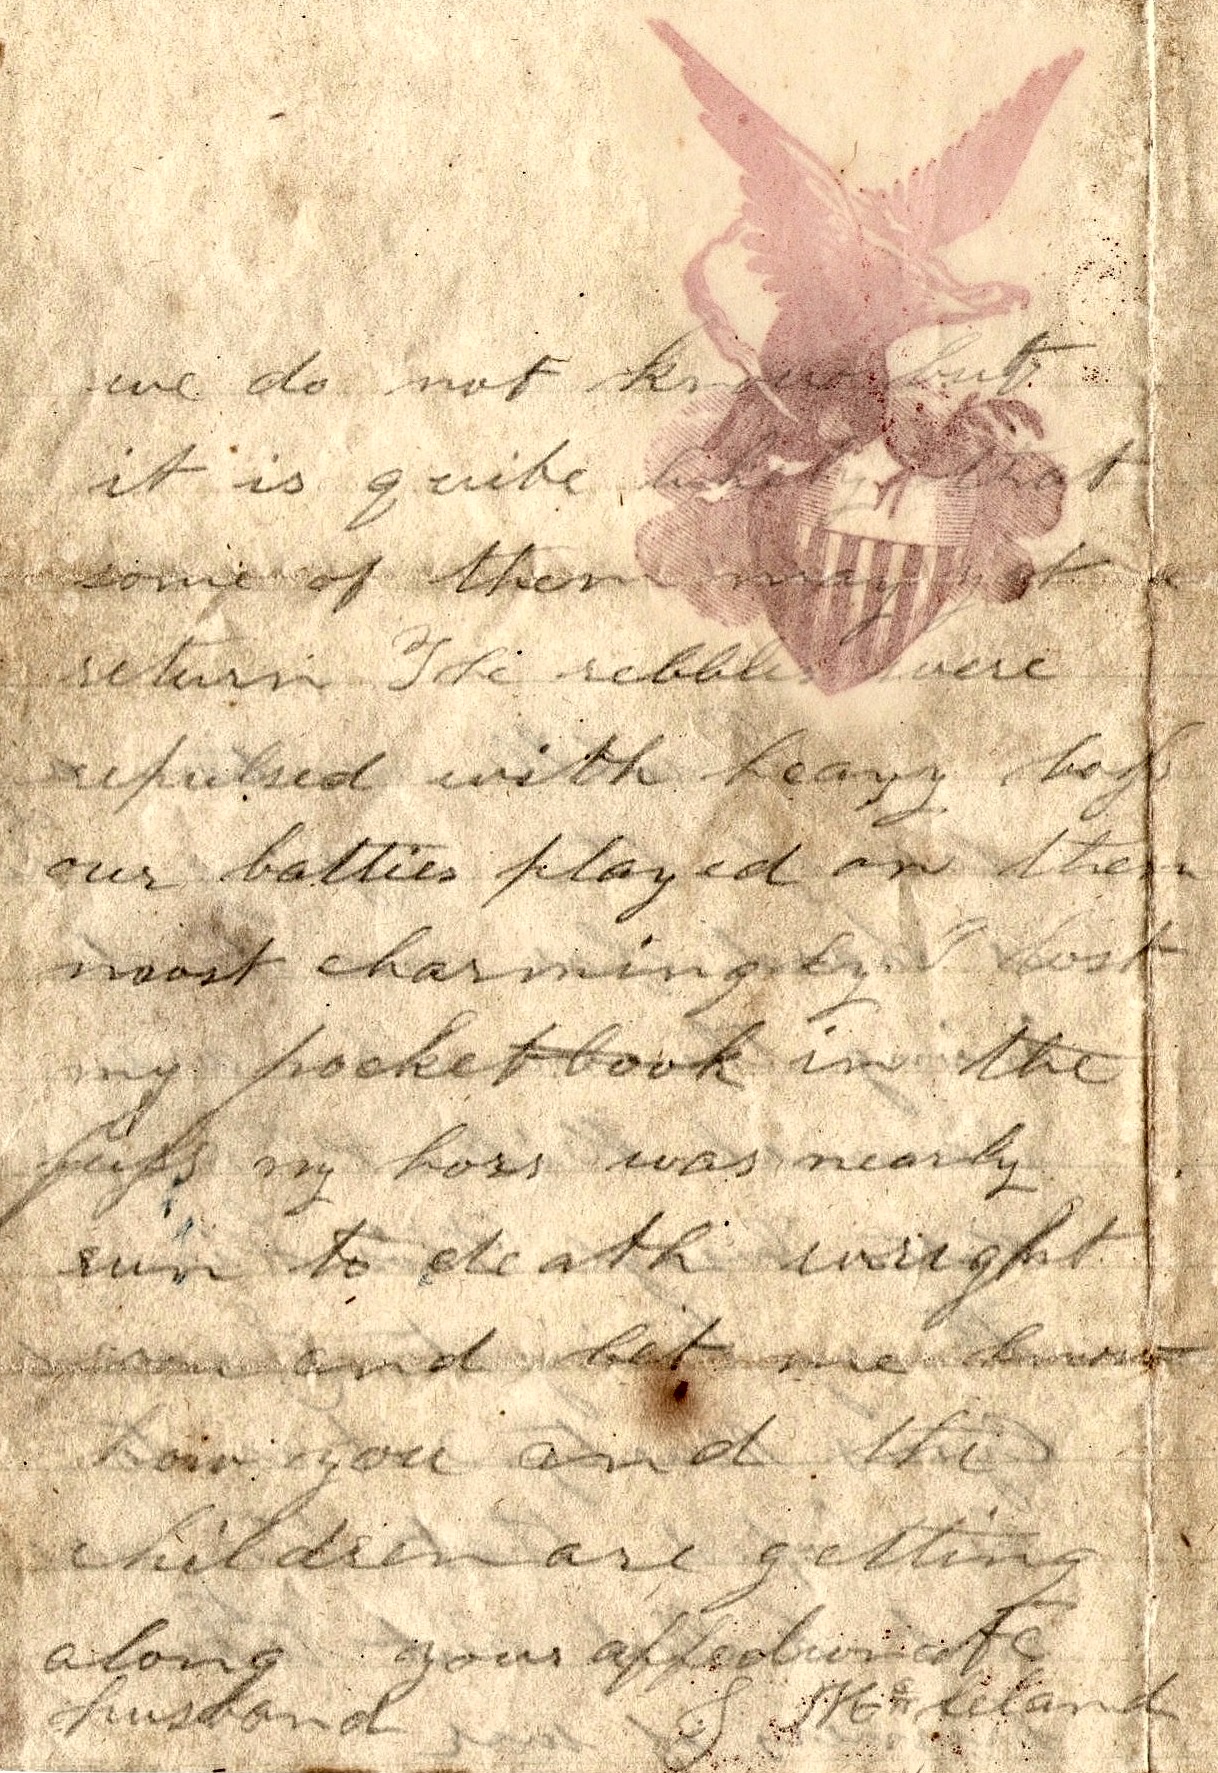 we do not know but
it is quite likely that
some of them may yet
return The rebbles were
repulsed with heavy loss
our batties played on them
moost charmingly I lost
my pocketbook in the
fuss my hors was nearly
run to death wright
soon and let me know
how you and the
children are getting
along your affectunate
husband